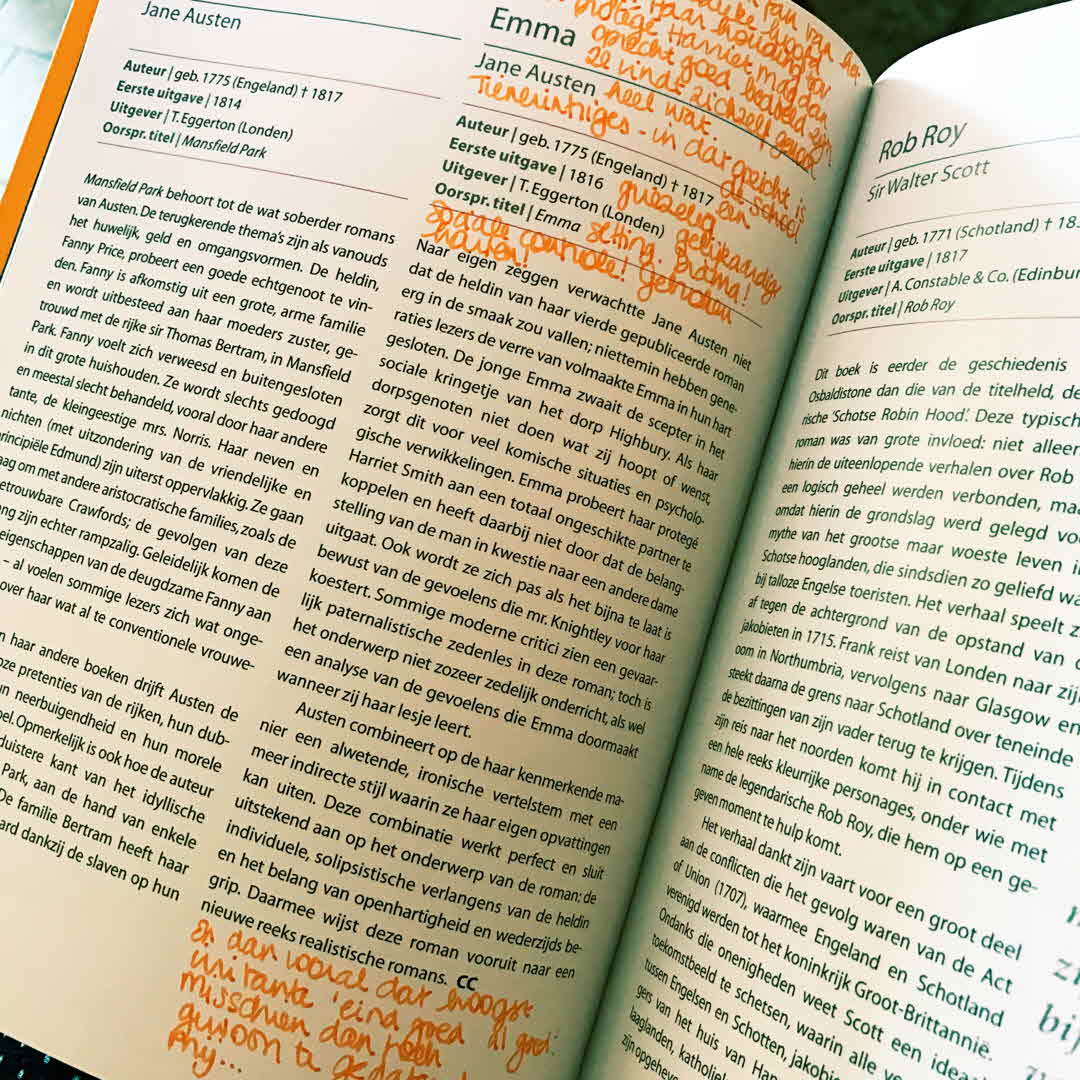 Jane Austen
Auteur | geb. 1775 (Engeland) † 1817
Eerste uitgave | 1814
Uitgever | T. Eggerton (Londen)
Oorspr. titel | Mansfield Park
Mansfield Park behoort tot de wat soberder romans
van Austen. De terugkerende thema's zijn als vanouds
het huwelijk, geld en omgangsvormen. De heldin,
Fanny Price, probeert een goede echtgenoot te vin-
den. Fanny is afkomstig uit een grote, arme familie
en wordt uitbesteed aan haar moeders zuster, ge-
trouwd met de rijke sir Thomas Bertram, in Mansfield
Park. Fanny voelt zich verweesd en buitengesloten
in dit grote huishouden. Ze wordt slechts gedoogd
en meestal slecht behandeld, vooral door haar andere
tante, de kleingeestige mrs. Norris. Haar neven en
nichten (met uitzondering van de vriendelijke en
principiële Edmund) zijn uiterst oppervlakkig. Ze gaan
om met andere aristocratische families, zoals de
Crawfords; de gevolgen van deze
zijn echter rampzalig. Geleidelijk komen de
eigenschappen van de deugdzame Fanny aan
– al voelen sommige lezers zich wat onge-
over haar wat al te conventionele vrouwe-
haar andere boeken drijft Austen de
pretenties van de rijken, hun dub-
neerbuigendheid en hun morele
Opmerkelijk is ook hoe de auteur
duistere kant van het idyllische
Park, aan de hand van enkele
De familie Bertram heeft haar
dankzij de slaven op hun
Emma
Jane Austen
heel wat.
protégé Harriet mag dan
oprecht goed bedoeld zijn
ze vindt zichzelf gewoon
Auteur | geb. 1775 (Engeland) † 1817
Eerste uitgave | 1816
Uitgever | T. Eggerton (Londen)
Oorspr. titel | Emma
setting. Drama!
sociale controle! genoten
Naar eigen zeggen verwachtte Jane Austen niet
dat de heldin van haar vierde gepubliceerde roman
erg in de smaak zou vallen; niettemin hebben gene-
raties lezers de verre van volmaakte Emma in hun hart
gesloten. De jonge Emma zwaait de scepter in het
sociale kringetje van het dorp Highbury. Als haar
dorpsgenoten niet doen wat zij hoopt of wenst,
zorgt dit voor veel komische situaties en psycholo-
gische verwikkelingen. Emma probeert haar protegé
Harriet Smith aan een totaal ongeschikte partner te
koppelen en heeft daarbij niet door dat de belang-
stelling van de man in kwestie naar een andere dame
uitgaat. Ook wordt ze zich pas als het bijna te laat is
bewust van de gevoelens die mr. Knightley voor haar
koestert. Sommige moderne critici zien een gevaar-
lijk paternalistische zedenles in deze roman; toch is
het onderwerp niet zozeer zedelijk onderricht, als wel
een analyse van de gevoelens die Emma doormaakt
wanneer zij haar lesje leert.
Austen combineert op de haar kenmerkende ma-
nier een alwetende, ironische vertelstem met een
meer indirecte stijl waarin ze haar eigen opvattingen
kan uiten. Deze combinatie werkt perfect en sluit
uitstekend aan op het onderwerp van de roman; de
individuele, solipsistische verlangens van de heldin
en het belang van openhartigheid en wederzijds be-
grip. Daarmee wijst deze roman vooruit naar een
nieuwe reeks realistische romans. CC
En dan vooral dat hoogst
irritante 'eind goed al goed'.
misschien ben ik
gewoon te
Rob Roy
Sir Walter Scott
Auteur | geb. 1771 (Schotland) †
Eerste uitgave | 1817
Uitgever | A. Constable & Co.
Oorspr. titel | Rob Roy
Dit boek is eerder de geschiedenis
Osbaldistone dan die van de titelheld, de
rische 'Schotse Robin Hood'. Deze typisch
roman was van grote invloed: niet alleen
hierin de uiteenlopende verhalen over Rob
een logisch geheel werden verbonden, maar
omdat hierin de grondslag werd gelegd
mythe van het grootse maar woeste leven
Schotse hooglanden, die sindsdien zo geliefd
bij talloze Engelse toeristen. Het verhaal speelt
af tegen de achtergrond van de opstand van
jakobieten in 1715. Frank reist van Londen naar zijn
oom in Northumbria, vervolgens naar Glasgow en
steekt daarna de grens naar Schotland over teneinde
de bezittingen van zijn vader terug te krijgen. Tijdens
zijn reis naar het noorden komt hij in contact met
een hele reeks kleurrijke personages, onder wie met
name de legendarische Rob Roy, die hem op een ge-
geven moment te hulp komt.
Het verhaal dankt zijn vaart voor een groot deel
aan de conflicten die het gevolg waren van de Act
of Union (1707), waarmee Engeland en Schotland
verenigd werden tot het koninkrijk Groot-Brittannië.
Ondanks die onenigheden weet Scott een
toekomstbeeld te schetsen, waarin alle
tussen Engelsen en Schotten,
gers van het huis van
laaglanden,
zijn